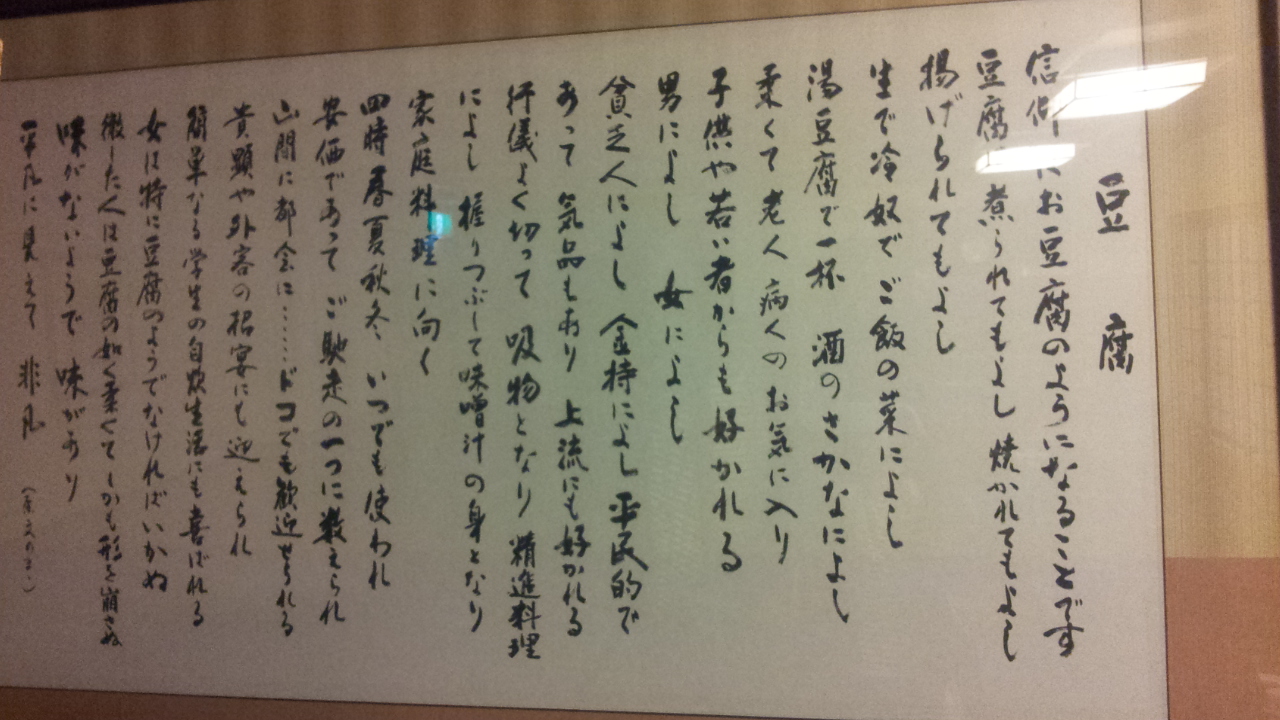 豆腐
信仰にお豆腐のようになることです
豆腐は煮られてもよし 焼かれてもよし
揚げられてもよし
生で冷奴で ご飯の菜によし
湯豆腐で一杯 酒のさかなによし
柔くて老人 病人のお気に入り
子供や若い者からも好かれる
男によし 女によし
貧乏人によし 金持によし 平民的で
あって 気品もあり 上流にも好かれる
行儀よく切って 吸物となり 精進料理
によし 握りつぶして味噌汁の身となり
家庭料理に向く
四時春夏秋冬 いつでも使われ
安価であって ご馳走の一つに数えられ
山間に都会に……ドコでも歓迎せられる
貴顕や外客の招宴にも迎えられ
簡単なる学生の自炊生活にも喜ばれる
女は特に豆腐のようでなければいかぬ
徹した人は豆腐の如く柔くてしかも形を崩さぬ
味がないようで 味があり
平凡に見えて 非凡